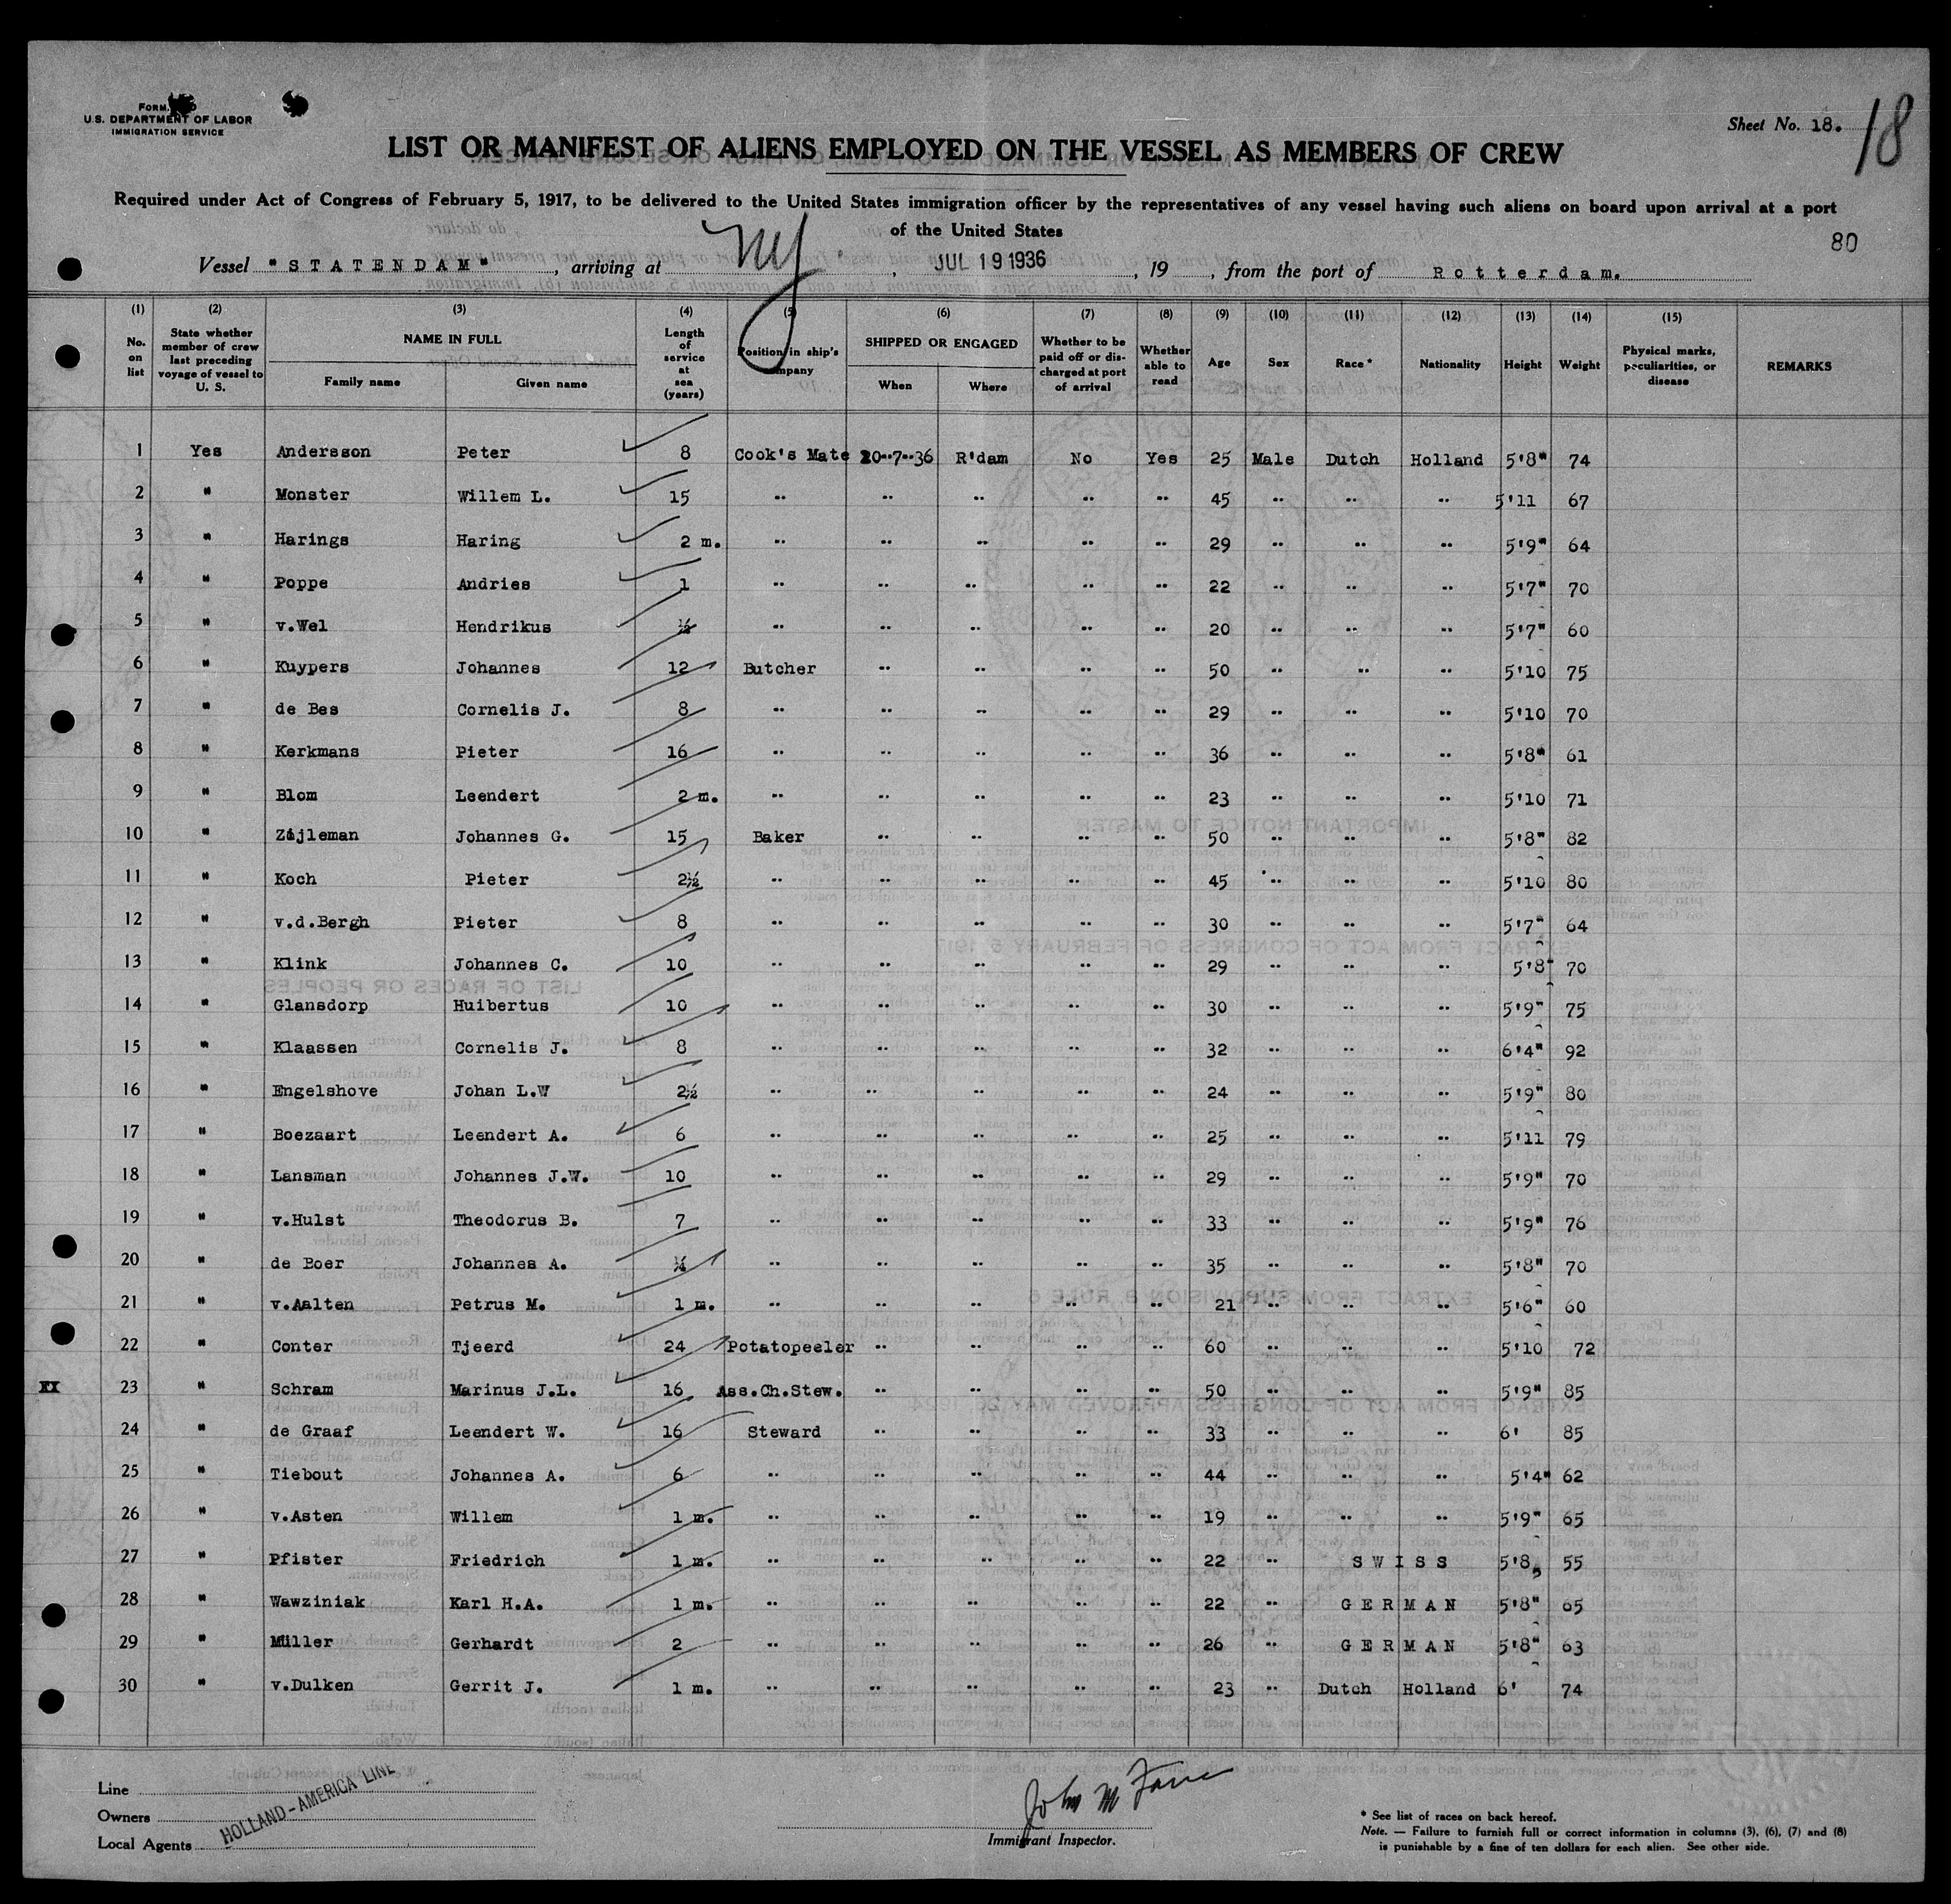 FORM
U.S. DEPARTMENT OF LABOR
IMMIGRATION SERVICE
Sheet No. 18.
18
LIST OR MANIFEST OF ALIENS EMPLOYED ON THE VESSEL AS MEMBERS OF CREW
Required under Act of Congress of February 5, 1917, to be delivered to the United States immigration officer by the representatives of any vessel having such aliens on board upon arrival at a port
of the United States
80
Vessel "STATENDAM", arriving at NY, JUL 19 1936, 19 , from the port of Rotterdam.
(1) (2) (3) (4) (5) (6) (7) (8) (9) (10) (11) (12) (13) (14) (15)
No. on list State whether member of crew last preceding voyage of vessel to U. S. NAME IN FULL Family name Given name Length of service at sea (years) Position in ship's company SHIPPED OR ENGAGED When Where Whether to be paid off or discharged at port of arrival Whether able to read Age Sex Race * Nationality Height Weight Physical marks, peculiarities, or disease REMARKS
1 Yes Andersson Peter 8 Cook's Mate 20--7--36 R'dam No Yes 25 Male Dutch Holland 5'8" 74
2 " Monster Willem L. 15 -- -- -- -- -- 45 -- -- -- 5'11 67
3 " Harings Haring 2 m. -- -- -- -- -- 29 -- -- -- 5'9" 64
4 " Poppe Andries 1 -- -- -- -- -- 22 -- -- -- 5'7" 70
5 " v.Wel Hendrikus ½ -- -- -- -- -- 20 -- -- -- 5'7" 60
6 " Kuypers Johannes 12 Butcher -- -- -- -- 50 -- -- -- 5'10 75
7 " de Bes Cornelis J. 8 -- -- -- -- -- 29 -- -- -- 5'10 70
8 " Kerkmans Pieter 16 -- -- -- -- -- 36 -- -- -- 5'8" 61
9 " Blom Leendert 2 m. -- -- -- -- -- 23 -- -- -- 5'10 71
10 " Zijleman Johannes G. 15 Baker -- -- -- -- 50 -- -- -- 5'8" 82
11 " Koch Pieter 2½ -- -- -- -- -- 45 -- -- -- 5'10 80
12 " v.d.Bergh Pieter 8 -- -- -- -- -- 30 -- -- -- 5'7" 64
13 " Klink Johannes C. 10 -- -- -- -- -- 29 -- -- -- 5'8" 70
14 " Glansdorp Huibertus 10 -- -- -- -- -- 30 -- -- -- 5'9" 75
15 " Klaassen Cornelis J. 8 -- -- -- -- -- 32 -- -- -- 6'4" 92
16 " Engelshove Johan L.W 2½ -- -- -- -- -- 24 -- -- -- 5'9" 80
17 " Boezaart Leendert A. 6 -- -- -- -- -- 25 -- -- -- 5'11 79
18 " Lansman Johannes J.W. 10 -- -- -- -- -- 29 -- -- -- 5'9" 70
19 " v.Hulst Theodorus B. 7 -- -- -- -- -- 33 -- -- -- 5'9" 76
20 " de Boer Johannes A. ¼ -- -- -- -- -- 35 -- -- -- 5'8" 70
21 " v.Aalten Petrus M. 1 m. -- -- -- -- -- 21 -- -- -- 5'6" 60
22 " Conter Tjeerd 24 Potatopeeler -- -- -- -- 60 -- -- -- 5'10 72
XI 23 " Schram Marinus J.L. 16 Ass.Ch.Stew. -- -- -- -- 50 -- -- -- 5'9" 85
24 " de Graaf Leendert W. 16 Steward -- -- -- -- 33 -- -- -- 6' 85
25 " Tiebout Johannes A. 6 -- -- -- -- -- 44 -- -- -- 5'4" 62
26 " v.Asten Willem 1 m. -- -- -- -- -- 19 -- -- -- 5'9" 65
27 " Pfister Friedrich 1 m. -- -- -- -- -- 22 -- SWISS 5'8" 55
28 " Wawziniak Karl H.A. 1 m. -- -- -- -- -- 22 -- GERMAN 5'8" 65
29 " Müller Gerhardt 2 -- -- -- -- -- 26 -- GERMAN 5'8" 63
30 " v.Dulken Gerrit J. 1 m. -- -- -- -- -- 23 -- Dutch Holland 6' 74
Line
Owners
Local Agents
HOLLAND-AMERICA LINE
John M
Immigrant Inspector.
* See list of races on back hereof.
Note. — Failure to furnish full or correct information in columns (3), (6), (7) and (8)
is punishable by a fine of ten dollars for each alien. See other side.